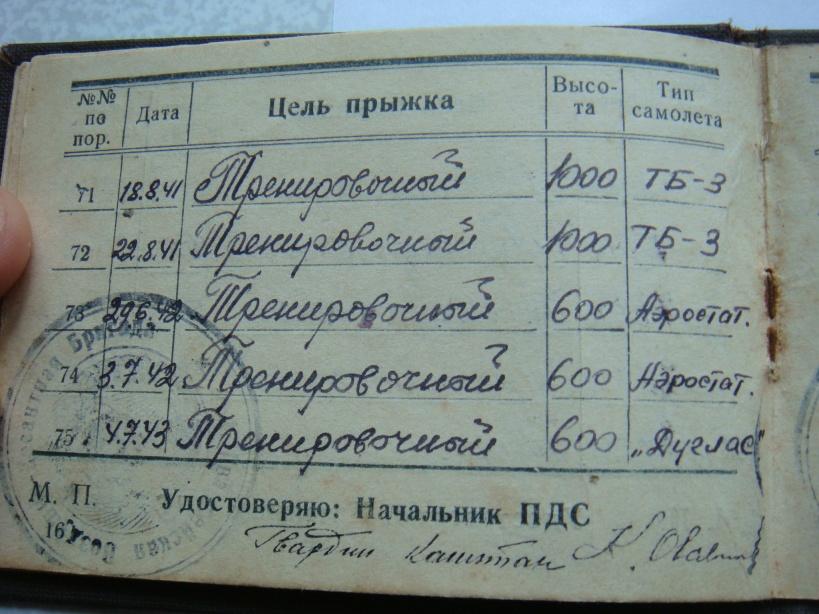 №№ по пор. Дата Цель прыжка Высо- та Тип самолета
71 18.8.41 Тренировочный 1000 ТБ-3
72 22.8.41 Тренировочный 1000 ТБ-3
73 29.6.42 Тренировочный 600 Аэростат.
74 3.7.42 Тренировочный 600 Аэростат.
75 4.7.43 Тренировочный 600 „Дуглас"
М. П. Удостоверяю: Начальник ПДС
16
Гвардии капитан
Бригада